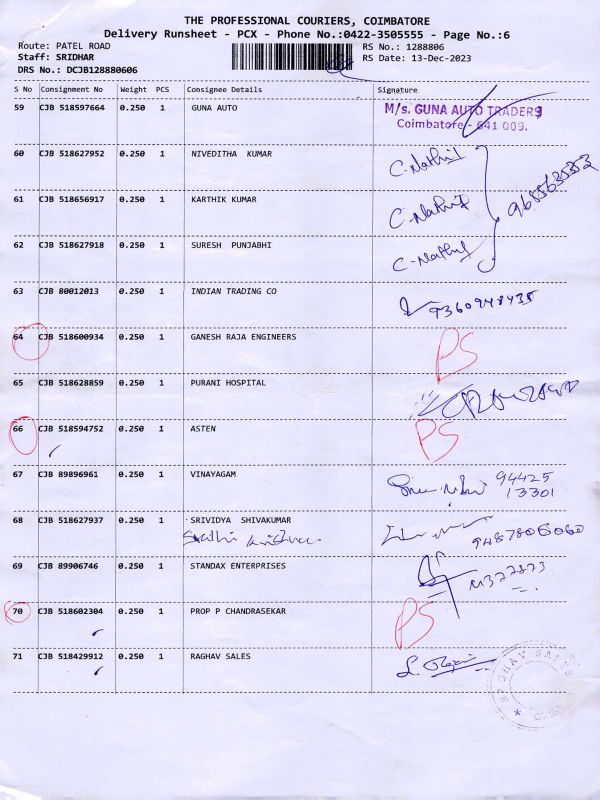 THE PROFESSIONAL COURIERS, COIMBATORE
Delivery Runsheet - PCX - Phone No.:0422-3505555 - Page No.:6
Route: PATEL ROAD RS No.: 1288806
Staff: SRIDHAR RS Date: 13-Dec-2023
DRS No.: DCJB128880606
S No Consignment No Weight PCS Consignee Details Signature
59 CJB 518597664 0.250 1 GUNA AUTO M/s. GUNA AUTO TRADERS
Coimbatore - 641 009.
60 CJB 518627952 0.250 1 NIVEDITHA KUMAR C. Nathil
61 CJB 518656917 0.250 1 KARTHIK KUMAR C. Nathil
62 CJB 518627918 0.250 1 SURESH PUNJABHI C. Nathil
63 CJB 80012013 0.250 1 INDIAN TRADING CO 9360948435
64 CJB 518600934 0.250 1 GANESH RAJA ENGINEERS PS
65 CJB 518628859 0.250 1 PURANI HOSPITAL
66 CJB 518594752 0.250 1 ASTEN PS
67 CJB 89896961 0.250 1 VINAYAGAM 94425
13301
68 CJB 518627937 0.250 1 SRIVIDYA SHIVAKUMAR
9487806060
69 CJB 89906746 0.250 1 STANDAX ENTERPRISES
70 CJB 518602304 0.250 1 PROP P CHANDRASEKAR PS
71 CJB 518429912 0.250 1 RAGHAV SALES
RAGHAV SALES